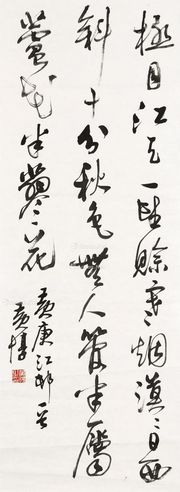 極目江天一望賒寒烟漠漠日西
斜十分秋色無人管半屬
蘆花半蓼花
黄庚江邨一首
黄惇